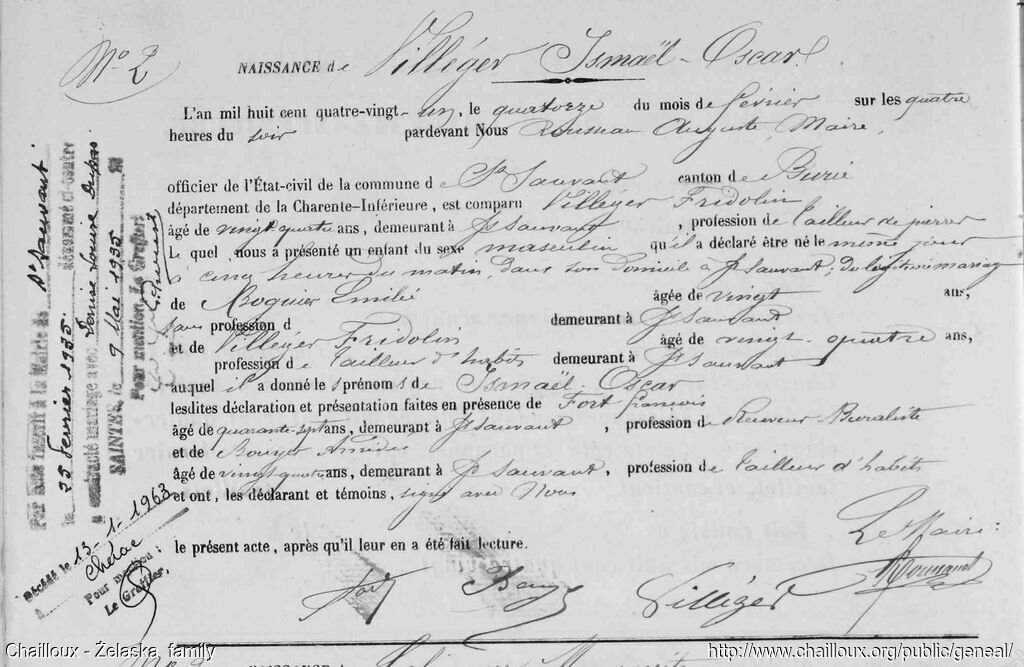 No 2
NAISSANCE de Villéger Ismaël-Oscar
L'an mil huit cent quatre-vingt-un, le quatorze du mois de février sur les quatre
heures du soir pardevant Nous Rousseau Auguste Maire,
officier de l'État-civil de la commune d e St Sauvant canton de Burie
département de la Charente-Inférieure, est comparu Villéger Fridolin
âgé de vingt quatre ans, demeurant à St Sauvant, profession de tailleur de pierres
Le quel nous a présenté un enfant du sexe masculin qu'il a déclaré être né le même jour
à cinq heures du matin, dans son domicile à St Sauvant; du légitime mariage
de Roquier Emilie âgée de vingt ans,
sans profession d demeurant à St Sauvant
et de Villéger Fridolin âgé de vingt-quatre ans,
profession de tailleur d'habits demeurant à St Sauvant
auquel il a donné le s prénom s de Ismaël-Oscar
lesdites déclaration et présentation faites en présence de Fort françois
âgé de quarante-sept ans, demeurant à St Sauvant, profession de Receveur-Buraliste
et de Bouyer
âgé de vingt-quatre ans, demeurant à St Sauvant, profession de tailleur d'habits
et ont, les déclarant et témoins, signé avec Nous
le présent acte, après qu'il leur en a été fait lecture.
Le Maire:
Fort Bouyer Villéger Rousseau
Par Acte inscrit à la Mairie de St Sauvant
le 25 février 1935. Dénommé ci-contre
a contracté mariage avec Denise Louise Dupas
SAINTES, le 9 Mai 1935
Pour mention, Le Greffier
Décédé le 13-1-1963
à Chérac
Pour mention:
Le Greffier,
NAISSANCE de
Chailloux - Żelaska, family
http://www.chailloux.org/public/geneal/